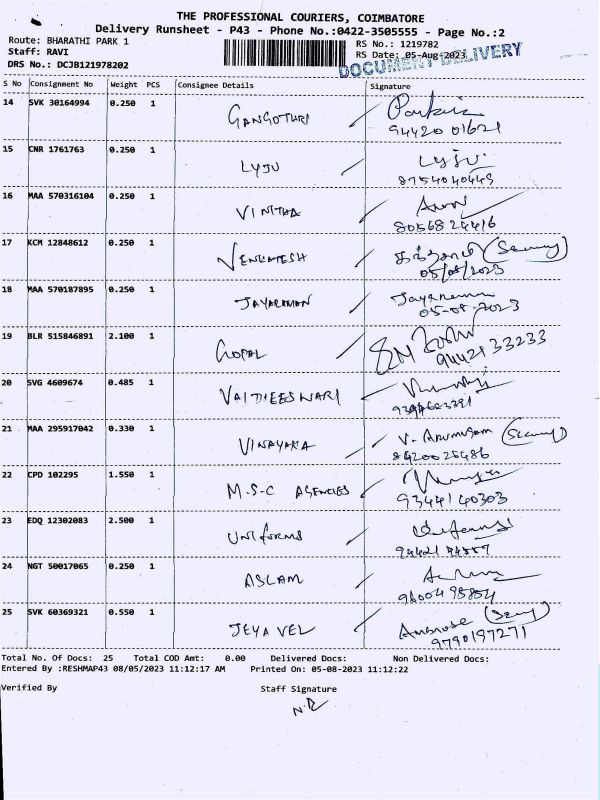 THE PROFESSIONAL COURIERS, COIMBATORE
Delivery Runsheet - P43 - Phone No.:0422-3505555 - Page No.:2
Route: BHARATHI PARK 1
RS No.: 1219782
Staff: RAVI
RS Date: 05-Aug-2023
DRS No.: DCJB121978202
DOCUMENT DELIVERY
S No Consignment No Weight PCS Consignee Details Signature
14 SVK 30164994 0.250 1 GANGOTHRI
94420 01621
15 CNR 1761763 0.250 1 LYJU Lyju
8754040449
16 MAA 570316104 0.250 1 VINITHA Arun
8056824416
17 KCM 12848612 0.250 1 VENKATESH
05/08/2023
18 MAA 570187895 0.250 1 JAYARAMAN Jayaraman
05-08-2023
19 BLR 515846891 2.100 1 GOPAL
9442133233
20 SVG 4609674 0.485 1 VAITHEESWARI
21 MAA 295917042 0.330 1 VINAYAKA V. Arumugam
8420025486
22 CPD 102295 1.550 1 M.S.C AGENCIES
9344140303
23 EDQ 12302083 2.500 1 UNIFORMS
24 NGT 50017065 0.250 1 ASLAM
25 SVK 60369321 0.550 1 JEYAVEL Ambrose
9790197271
Total No. Of Docs: 25 Total COD Amt: 0.00 Delivered Docs: Non Delivered Docs:
Entered By :RESHMAP43 08/05/2023 11:12:17 AM Printed On: 05-08-2023 11:12:22
Verified By Staff Signature